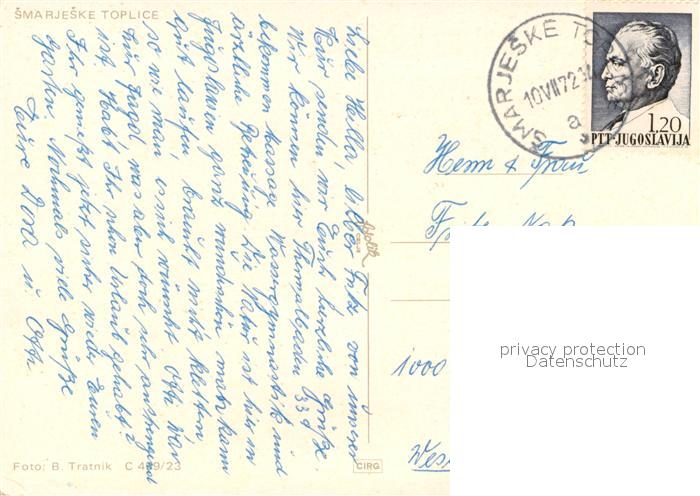 ŠMARJEŠKE TOPLICE
Liebe Hella, lieber Fritz von unserer
Kur senden wir Euch herzliche Grüße.
Wir können hier Thermalbaden 33°
bekommen Massage Wassergymnastik und
ärztliche Betreuung. Die Natur ist hier in
Jugoslawien ganz wunderschön man kann
gut laufen, braucht nicht klettern
so wie man es sich wünscht Otto war
zur Jagd, was aber doch sehr anstrengend
ist. Habt Ihr schon Urlaub gehabt?
Ihr genießt jetzt sicher wieder Euren
Garten. Nochmals viele Grüße
Eure Dora u. Otto
Foto: B. Tratnik C 449/23
CIRG
ŠMARJEŠKE TO
10.VII.72
a
1.20
PTT-JUGOSLAVIJA
Herrn & Frau
Fritz
1000
Wes
privacy protection
Datenschutz